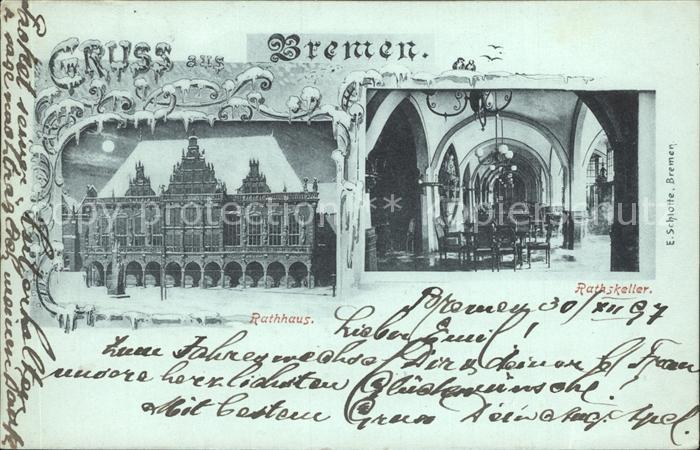 Gruss aus Bremen.
Rathhaus.
Rathskeller.
E. Schlotte, Bremen.
copy protection ** Kopierschutz
Bremen 30/XII 97
Lieber Emil!
Zum Jahreswechsel Dir u. deiner l. Frau
unsere herzlichsten Glückwünsche!
Mit bestem Gruss Dein Aug.